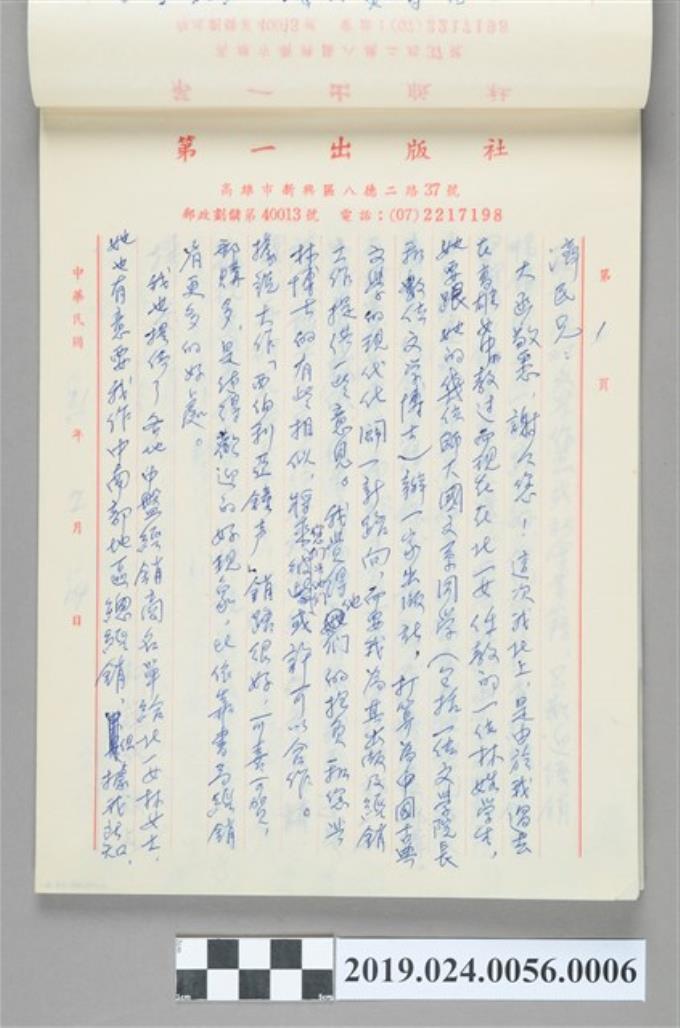 第一出版社
高雄市新興區八德二路37號
郵政劃儲第40013號 電話:(07)2217198
第1頁
濟民兄：
大函敬悉，謝謝您！這次我北上，是由於我過去
在高雄 教過而現在在北一女任教的一位林姓學生，
她要跟她的幾位師大國文系同學（包括一位文學院長
和數位文學博士）辦一家出版社，打算為中国古典
文學的現代化闢一新路向，而要我為其出版及經銷
工作提供一些意見。我覺得他們的抱負和您與
林博士的有些相似，將來您們與他們或許可以合作。
據說大作「西伯利亞鐘声」銷路很好，可喜可賀，
郵購多，是值得歡迎的好現象，比依靠書局經銷
有更多的好處。
我也提供了各地中盤經銷商名單給北一女林女士，
她也有意要我作中南部地區總經銷，但據我所知，
中華民國 年 2月 日
2019.024.0056.0006